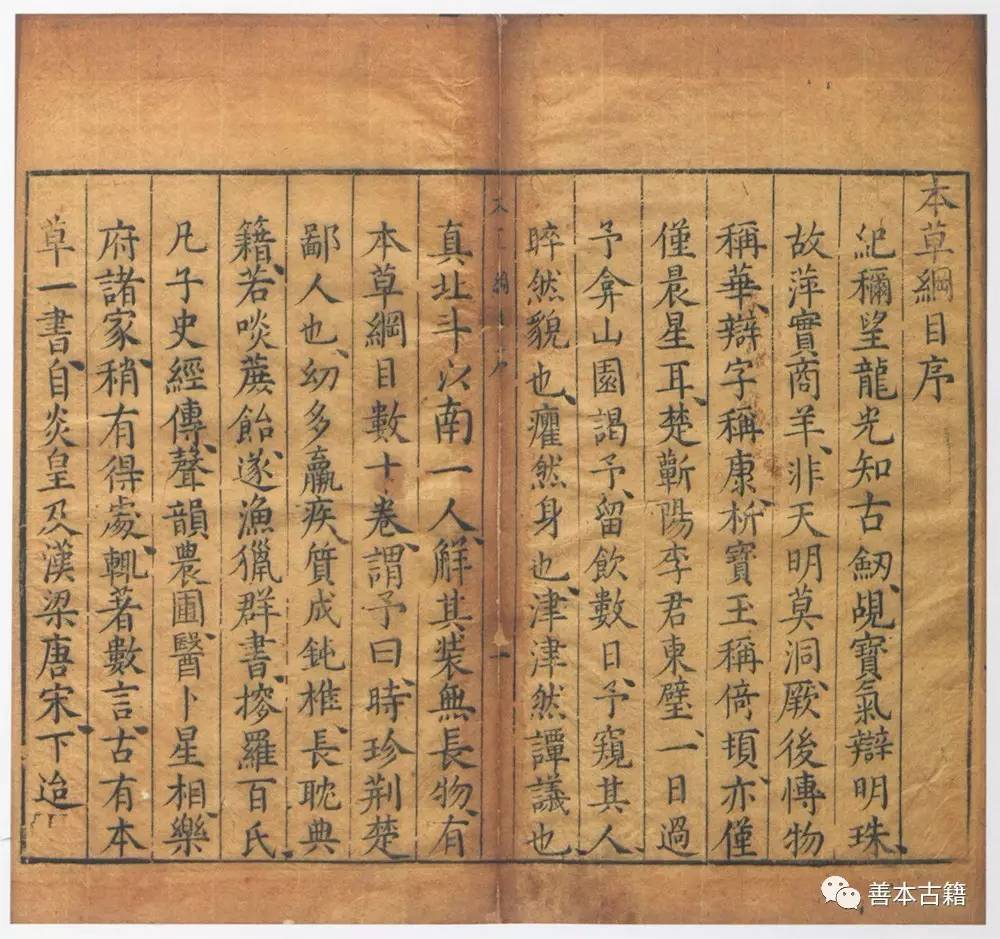 本草綱目序
紀稱望龍光知古劔、覘寶氣辯明珠、
故萍實商羊、非天明莫洞、厥後博物
稱華、辯字稱康、析寶玉稱倚頓、亦僅
僅晨星耳、楚蘄陽李君東璧、一日過
予弇山園謁予、留飲數日、予窺其人、
睟然貌也、癯然身也、津津然譚議也、
真北斗以南一人、解其裝無長物、有
本草綱目數十卷、謂予曰、時珍荆楚
鄙人也、幼多羸疾、質成鈍椎、長耽典
籍、若啖蔗飴、遂漁獵群書、搜羅百氏、
凡子史經傳、聲韻農圃、醫卜星相、樂
府諸家、稍有得處、輒著數言、古有本
草一書、自炎皇及漢梁唐宋、下迨
一
善本古籍